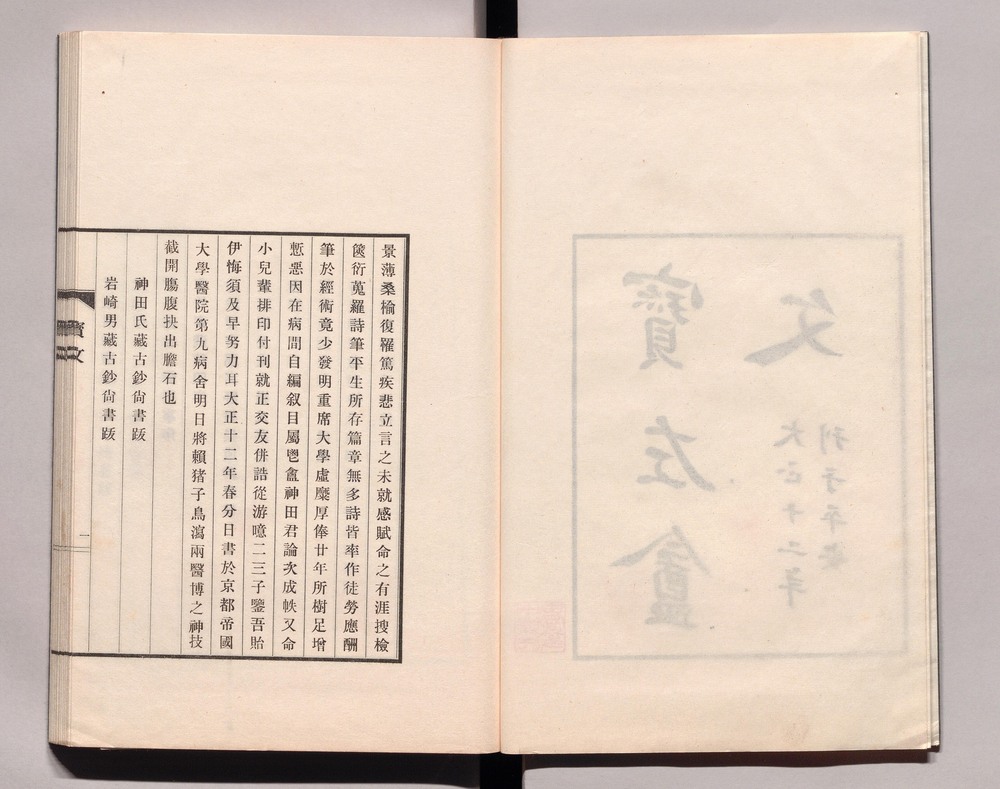 文
寶左盦
大正十二年
刊于平安
景薄桑楡復罹篤疾悲立言之未就感賦命之有涯搜檢
篋衍蒐羅詩筆平生所存篇章無多詩皆率作徒勞應酬
筆於經術竟少發明重席大學虛糜厚俸廿年所樹足增
慙恧因在病間自編叙目屬鬯盦神田君論次成帙又命
小兒輩排印付刊就正交友併誥從游噫二三子鑒吾貽
伊悔須及早努力耳大正十二年春分日書於京都帝國
大學醫院第九病舍明日將賴猪子鳥瀉兩醫博之神技
截開膓腹抉出膽石也
神田氏藏古鈔尙書跋
岩崎男藏古鈔尙書跋
寶
文
一